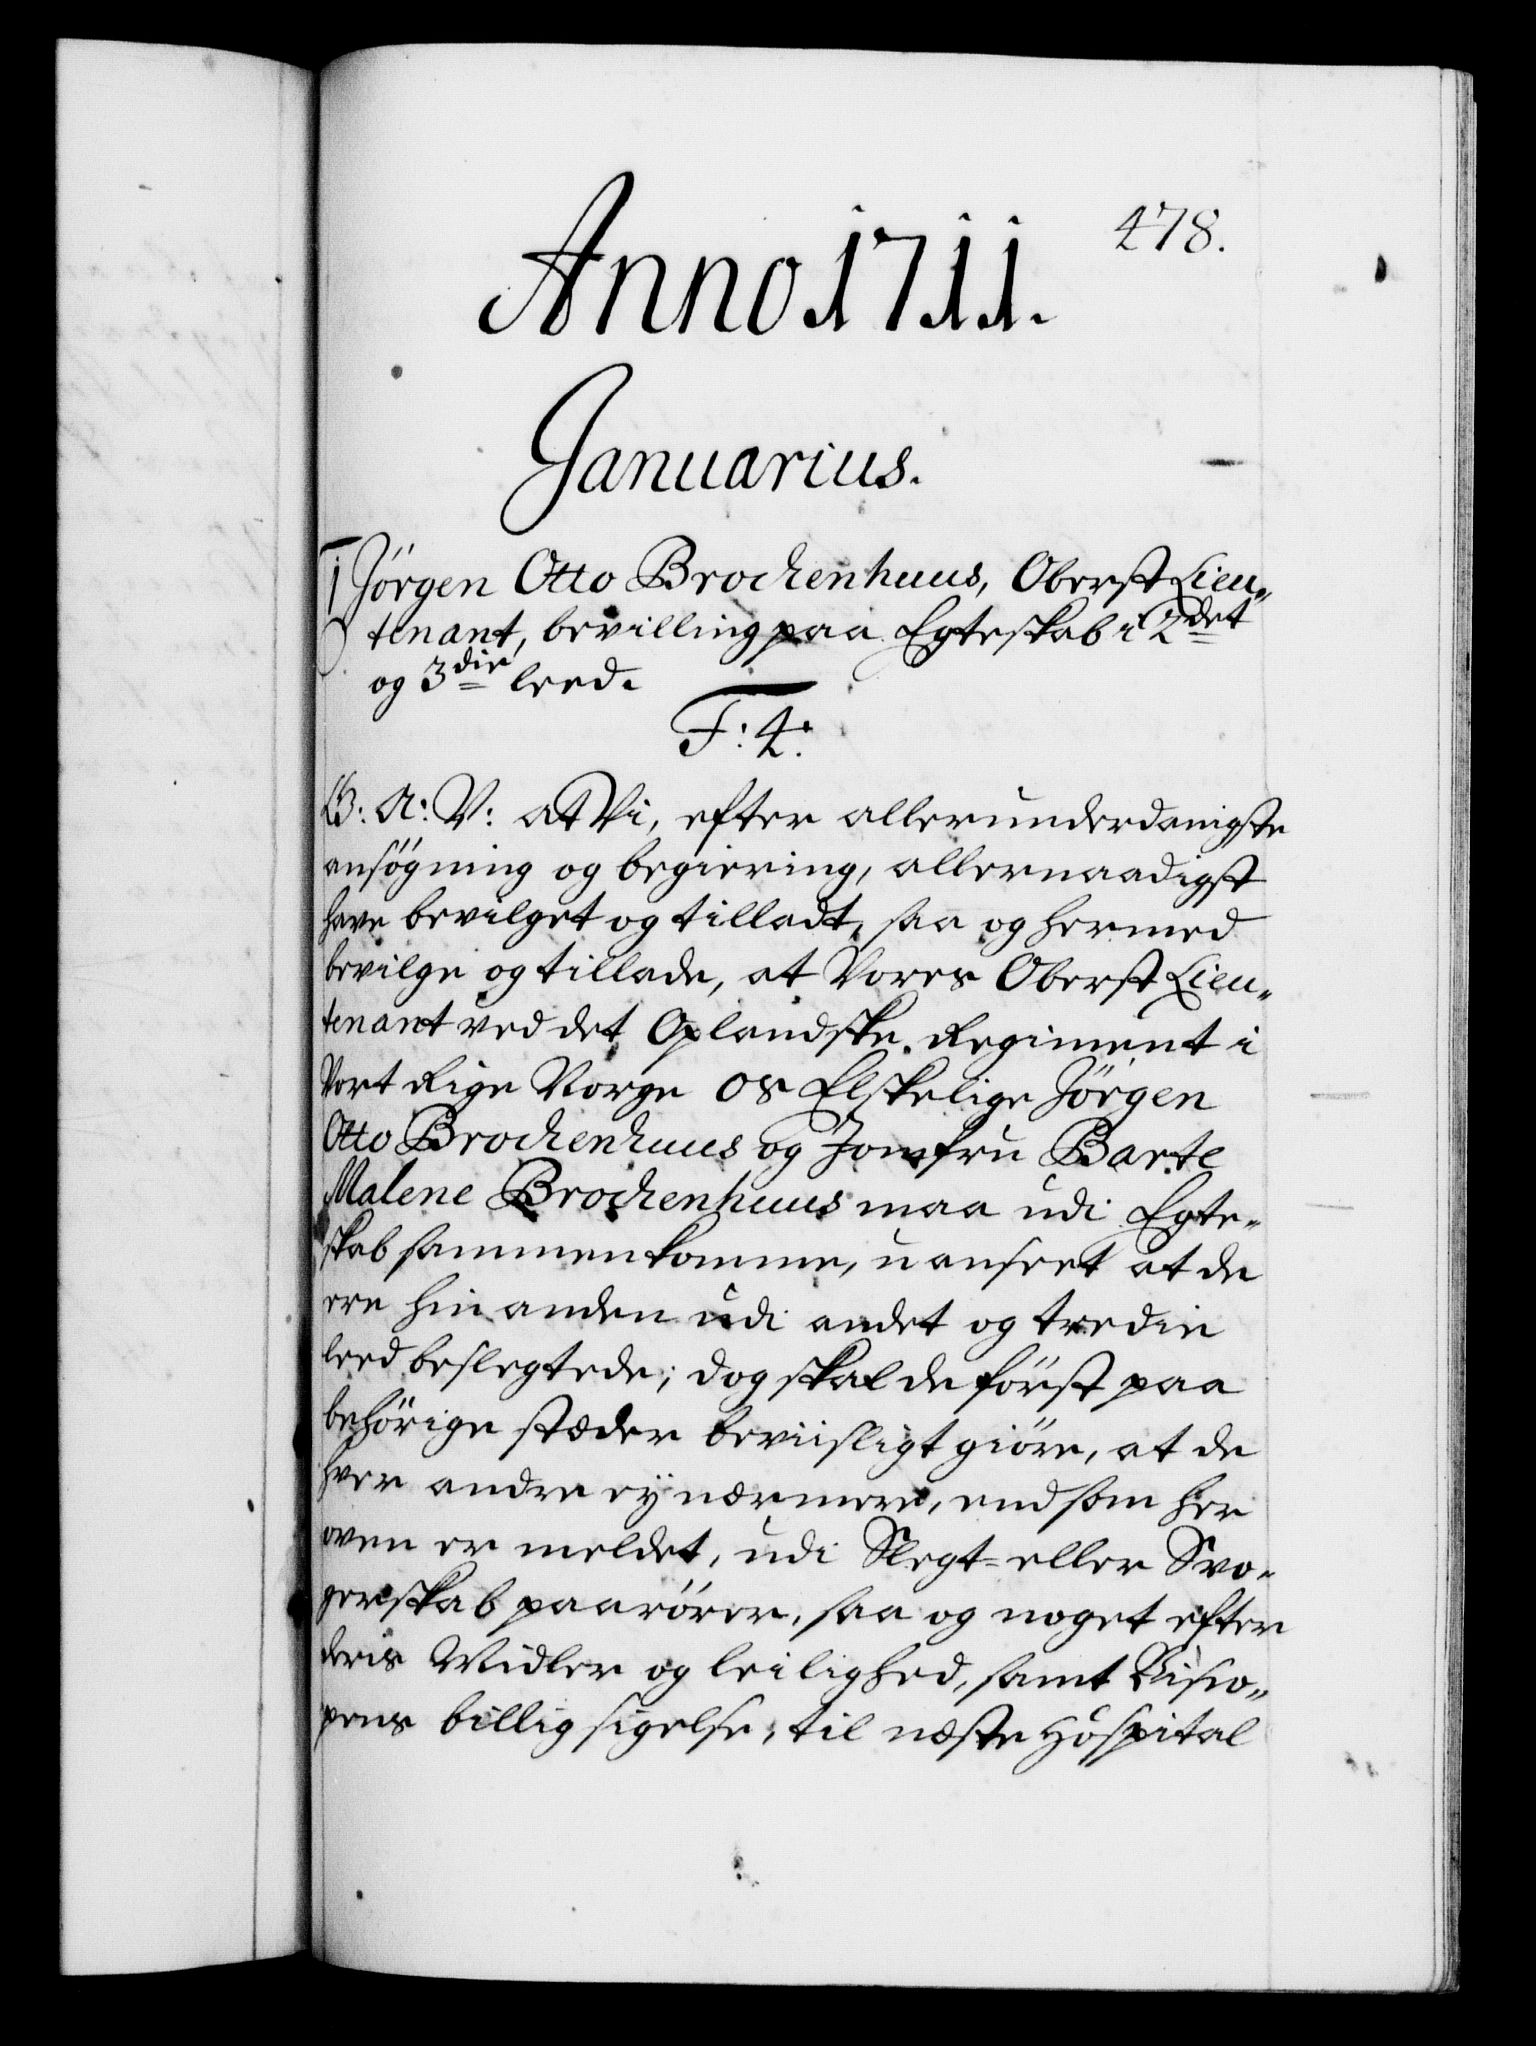 478.
Anno 1711.
Januarius.
1 Jörgen Otto Brochenhuus, Oberst Lieu„
tenant, bevilling paa Egteskab i 2det
og 3die leed.
F: 4.
G: A: V: at Vi, efter allerunderdanigste
ansögning og begiering, allernaadigst
have bevilget og tilladt, saa og hermed
bevilge og tillade, at Vores Oberst Lieu„
tenant ved det Oplandske Regiment i
Vort Rige Norge os Elskelige Jörgen
Otto Brochenhuus og Jomfru Barte
Malene Brochenhuus maa udi Egte„
skab sammenkomme, uanseet at de
ere hin anden udi andet og tredie
leed beslegtede; dog skal de först paa
behörige stæder beviisligt giöre, at de
hver andre ey nærmere, end som her
oven er meldet, udi Slegt= eller Svo„
gerskab paarörer, saa og noget efter
deris Midler og leilighed, samt Bisco„
pens billig sigelse, til næste Hospital